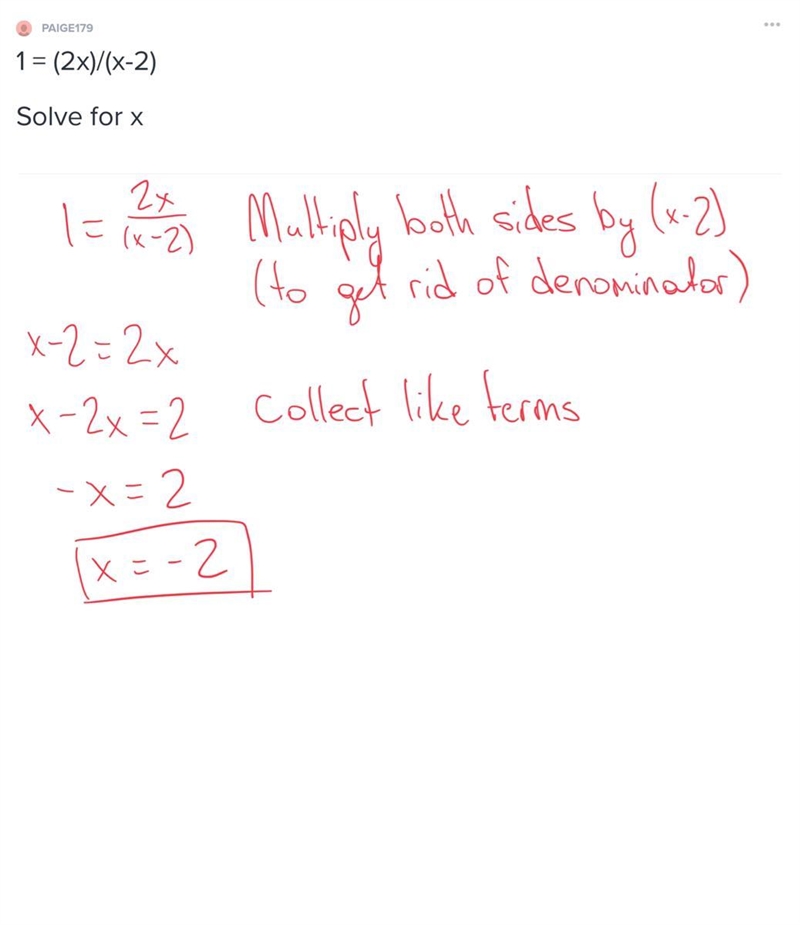 PAIGE179
1 = (2x)/(x-2)
Solve for x
1 = 2x/(x-2) Multiply both sides by (x-2)
(to get rid of denominator)
x-2=2x
x-2x=2 Collect like terms
-x=2
x=-2